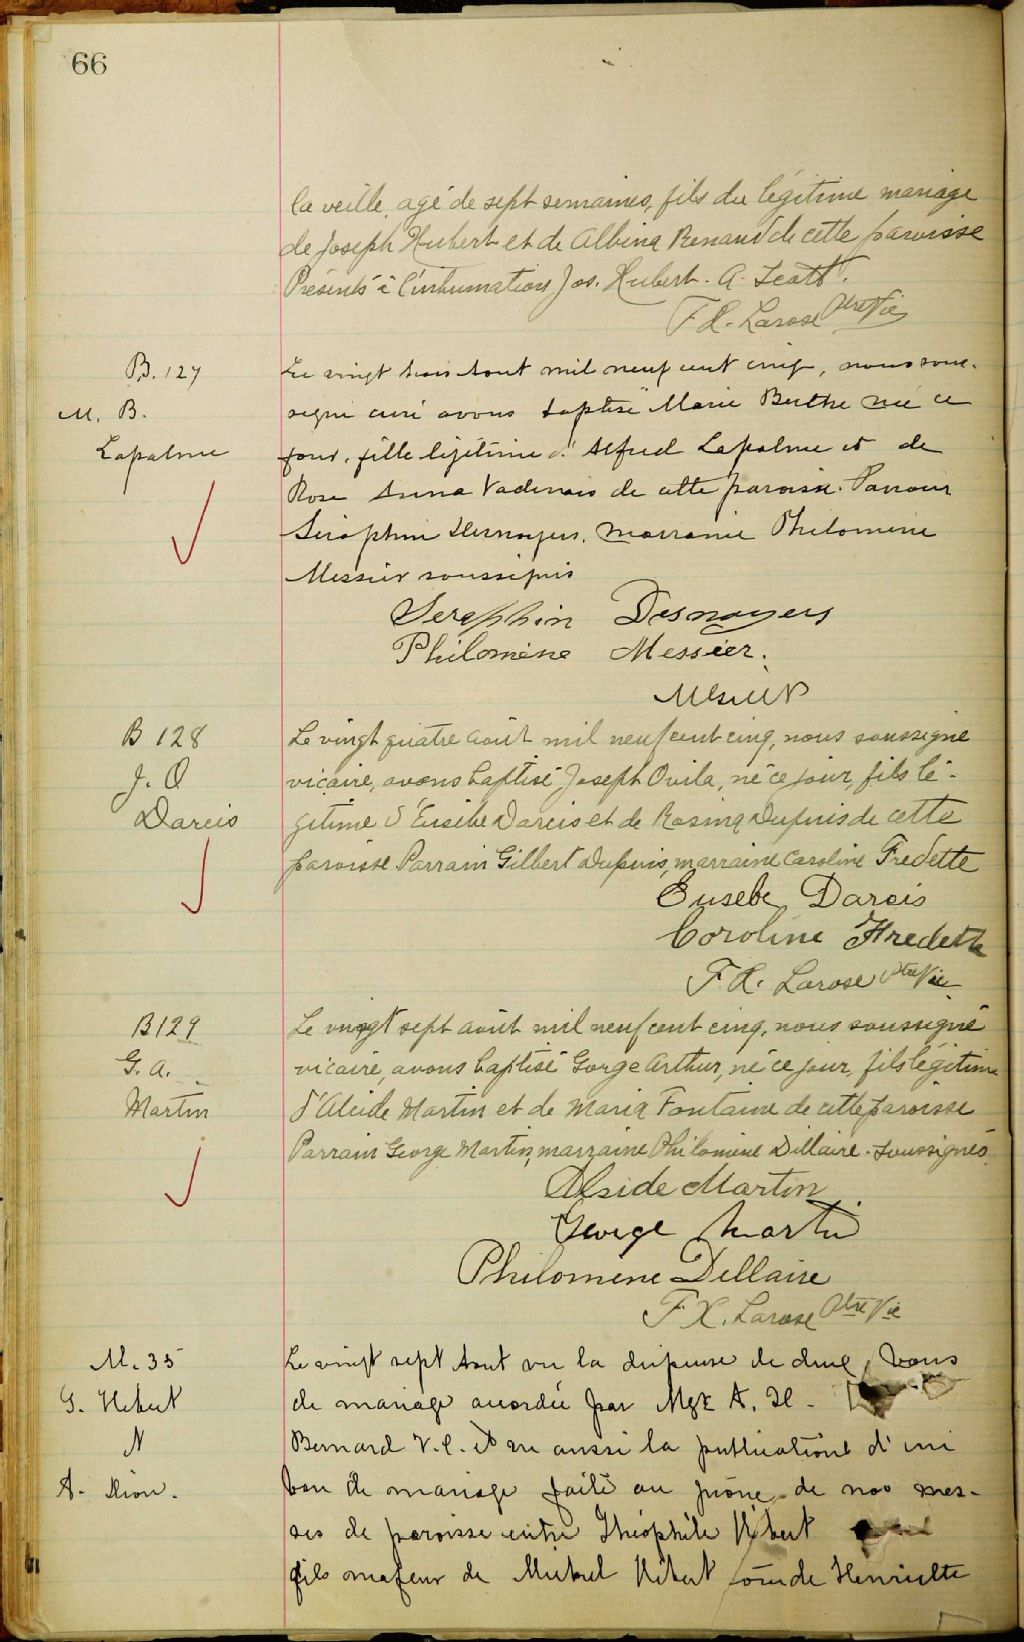 66
la veille, agé de sept semaines, fils du légitime mariage
de Joseph Hubert et de Albina Renaud de cette paroisse
Présents à l'inhumation Jos. Hubert. A. Scott.
F X. Larose Ptre Vic
B. 127
M. B.
Lapalme
Le vingt trois Aout mil neuf cent cinq, nous sous-
signé curé avons baptisé Marie Berthe née ce
jour, fille légitime d' Alfred Lapalme et de
Rose Anna Vadenais de cette paroisse. Parrain
Séraphin Desnoyers, marraine Philomène
Messier soussignés
Seraphin Desnoyers
Philomène Messier.
B 128
J. O
Dareis
Le vingt quatre août mil neuf cent cinq, nous soussigné
vicaire, avons baptisé Joseph Ovila, né ce jour, fils lé-
gitime d'Eusèbe Dareis et de Rosina Dupuis de cette
paroisse Parrain Gilbert Dupuis, marraine Caroline Fredette
Eusebe Dareis
Coroline Fredette
F. X. Larose Ptre Vic
B129
G. A.
Martin
Le vingt sept août mil neuf cent cinq, nous soussigné
vicaire, avons baptisé George Arthur, né ce jour, fils légitime
d'Alcide Martin et de Maria Fontaine de cette paroisse
Parrain George Martin, marraine Philomène Dillaire. Soussignés
Alside Martin
George Martin
Philomene Dellaire
F X. Larose Ptre Vic
M. 35
G. Hebert
&
A. Dion.
Le vingt sept Aout vu la dispense de deux bans
de mariage accordée par Mgr A. X.
Bernard V. C. et vu aussi la publication d'un
ban de mariage faite au prône de nos mes-
ses de paroisse entre Théophile Hébert
fils majeur de Michael Hébert et de Henriette